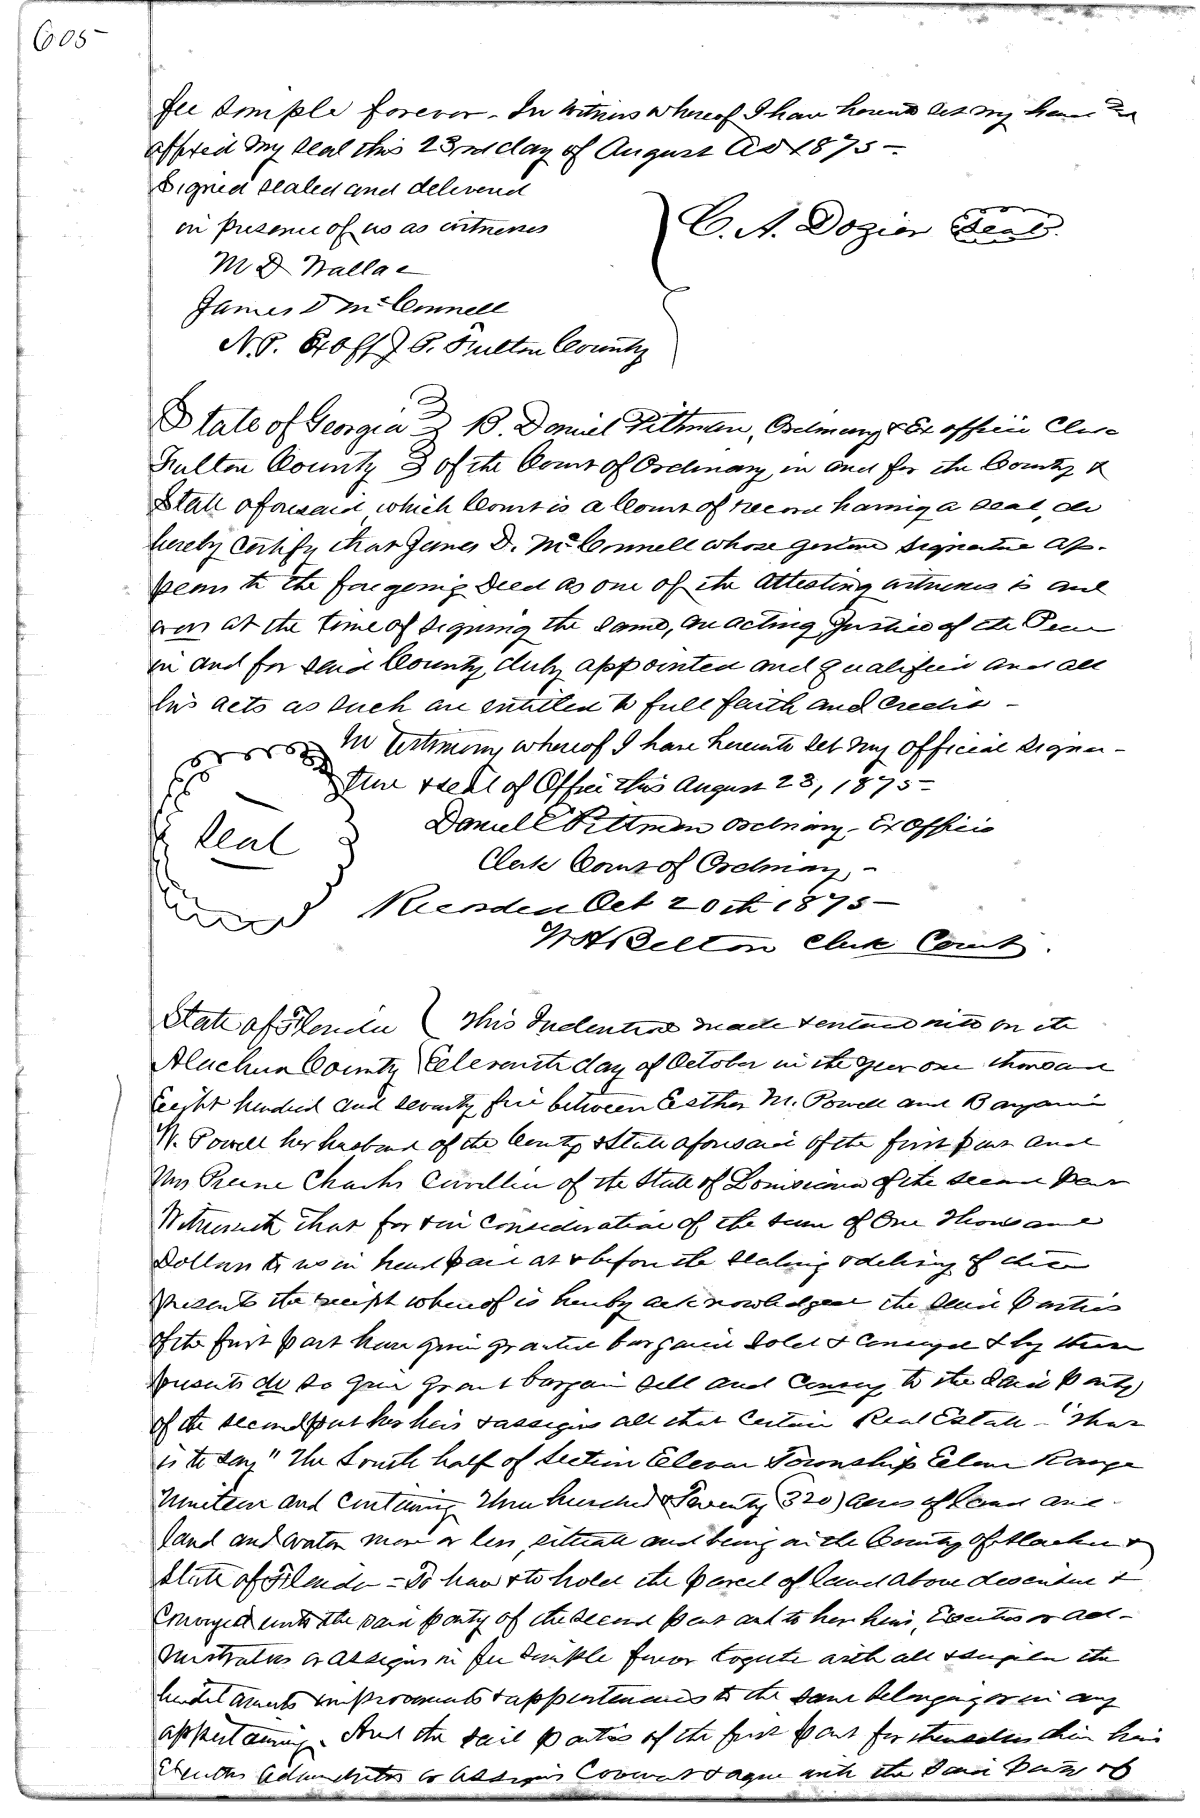 605
fee simple forever - In witness whereof I have hereunto set my hand and
affixed my seal this 23rd day of August AD 1875 -
Signed sealed and delivered
in presence of us as witnesses
C. A. Dozier Seal
M D Wallace
James D McConnell
N.P. Ex Off J P. Fulton County
State of Georgia } B. Daniel Pittman, Ordinary & Ex officio Clerk
Fulton County } of the Court of Ordinary in and for the County &
State aforesaid, which Court is a Court of record having a seal, do
hereby certify that James D. McConnell whose genuine signature ap-
pears to the foregoing Deed as one of the attesting witnesses is and
was at the time of signing the same, an acting Justice of the Peace
in and for said County duly appointed and qualified and all
his acts as such are entitled to full faith and credit -
In testimony whereof I have hereunto set my official signa-
ture & seal of Office this August 23, 1875 -
Seal
Daniel Pittman Ordinary - Ex Officio
Clerk Court of Ordinary -
Recorded Oct 20th 1875 -
Belton Clerk Court.
State of Florida { This Indenture made & entered into on the
Alachua County { Eleventh day of October in the year one thousand
Eight hundred and seventy five between Esther M. Powell and Benjamin
W. Powell her husband of the County & State aforesaid of the first part and
Mrs Charles of the State of Louisiana of the second part
Witnesseth that for & in consideration of the sum of One thousand
Dollars to us in hand paid at & before the sealing & delivery of these
presents the receipt whereof is hereby acknowledged the said parties
of the first part have given granted bargained sold & conveyed & by these
presents do so give grant bargain sell and convey to the said party
of the second part her heirs & assigns all that certain Real Estate - "that
is to say" The South half of Section Eleven Township Eleven Range
Nineteen and containing Three hundred & Twenty (320) acres of land and
land and water more or less, situate and being in the County of Alachua &
State of Florida - To have & to hold the parcel of land above described &
Conveyed unto the said party of the second part and to her heirs, Executors or ad-
ministrators or assigns in fee simple forever together with all & singular the
hereditaments improvements & appurtenances to the same belonging or in any
appertaining. And the said parties of the first part for themselves their heirs
Executors administrators or assigns Covenant & agree with the said party of